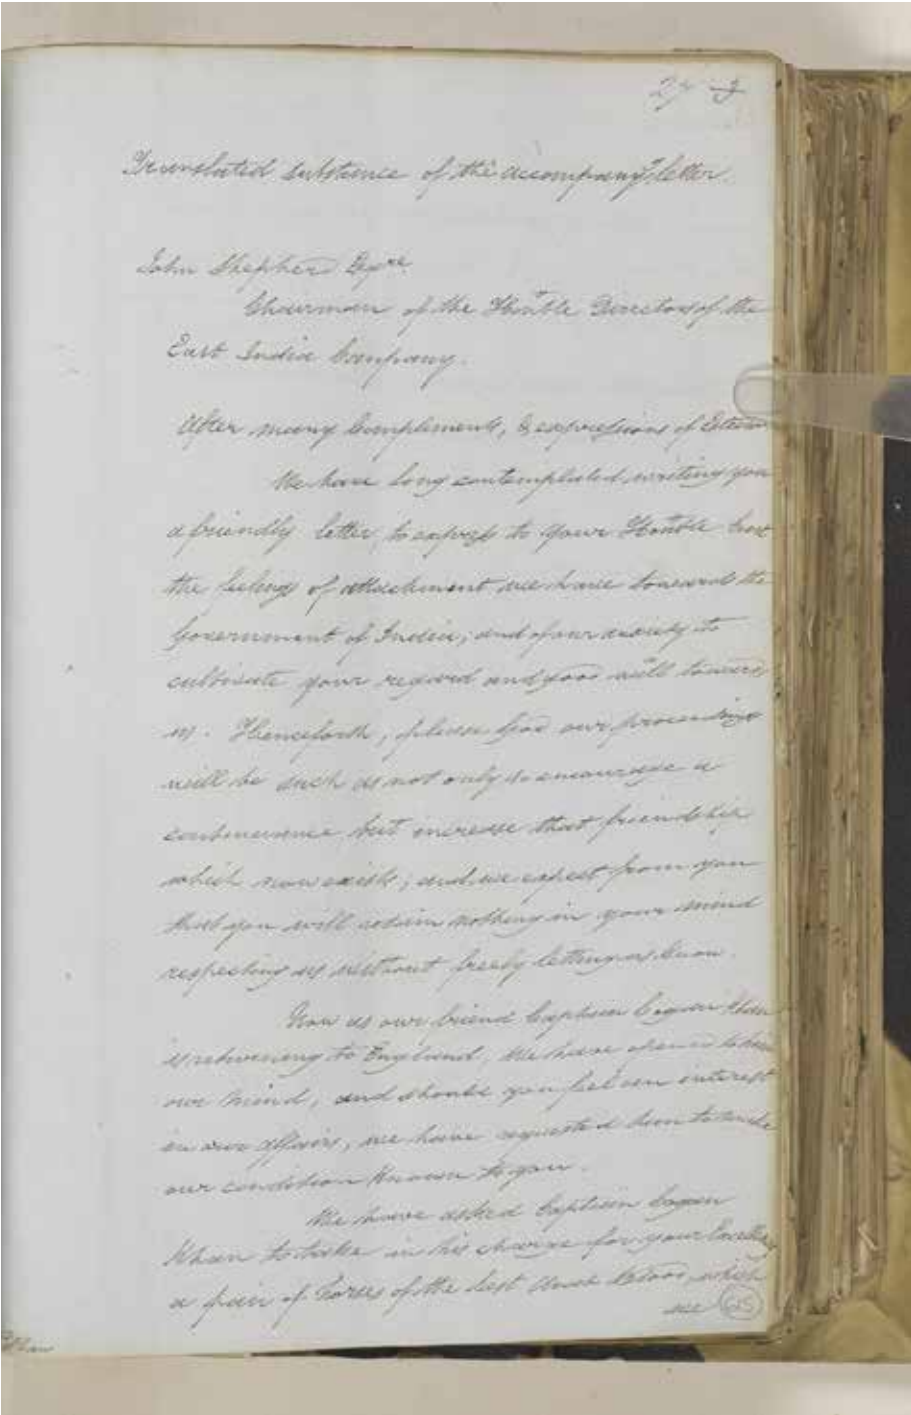 Translated substance of the accompanyg letter.
John Shepherd Esqre
Chairman of the Honble Directors of the
East India Company.
After many Compliments, & expressions of Esteem
We have long contemplated writing you
a friendly letter, to express to your Honble
the feelings of attachment we have toward the
Government of India; and of our anxiety to
cultivate your regard and good will towards
us. Henceforth, please God our proceedings
will be such as not only to encourage a
continuance, but increase that friendship
which now exists; and we expect from you
that you will retain nothing in your mind
respecting us without freely letting us know.
Now as our friend Captain Cogan Khan
is returning to England, We have opened to him
our mind, and should you feel an interest
in our affairs, we have requested him to make
our condition known to you.
We have asked Captain Cogan
Khan to take in his charge for your Excellency
a pair of Horses of the best Arab blood, which
we
65